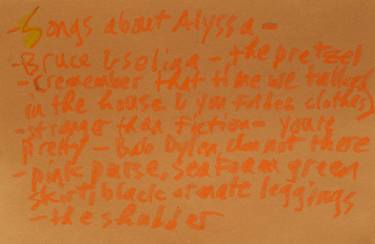 - Songs about Alyssa -
- Bruce & Selina - the pretzel
- (remember that time we talked
in the house & you folded clothes)
- stranger than fiction - you're
pretty - Bob Dylan, I'm not there
- pink purse, sea foam green
skirt, black ornate leggings
- the shudder